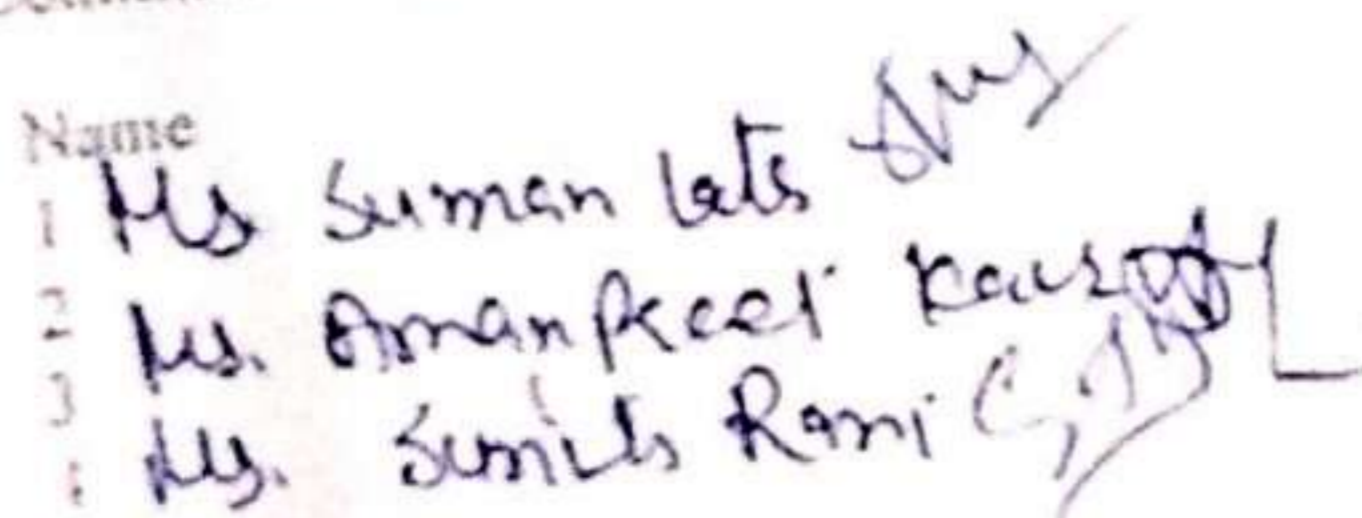 Name
1 Ms Suman Lata
2 Ms. Amanpreet Kaur
3 Ms. Sunita Rani